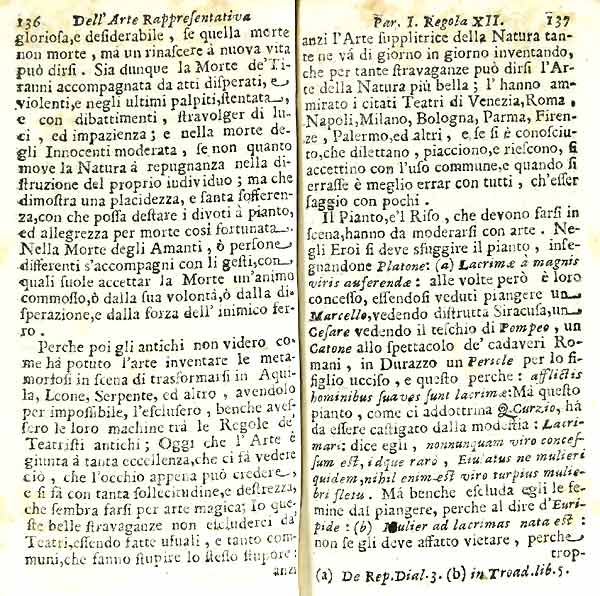 136 Dell'Arte Rappresentativa
gloriosa,e desiderabile, se quella morte
non morte, mà un rinascere à nuova vita
può dirsi. Sia dunque la Morte de'Ti-
ranni accompagnata da atti disperati, e
violenti,e negli ultimi palpiti,stentata,
e con dibattimenti, stravolger di lu-
ci, ed impazienza; e nella morte de-
gli Innocenti moderata, se non quanto
move la Natura à repugnanza nella di-
struzione del proprio individuo; ma che
dimostra una placidezza, e santa sofferen-
za,con che possa destare i divoti à pianto,
ed allegrezza per morte così fortunata.
Nella Morte degli Amanti, ò persone
differenti s'accompagni con li gesti,con
quali suole accettar la Morte un'animo
commosso,ò dalla sua volontà,ò dalla di-
sperazione,e dalla forza dell'inimico fer-
ro.
Perche poi gli antichi non videro co-
me hà potuto l'arte inventare le meta-
morfosi in scena di trasformarsi in Aqui-
la, Leone, Serpente, ed altro, avendolo
per impossibile, l'esclusero, benche aves-
sero le loro machine trà le Regole de'
Teatristi antichi; Oggi che l'Arte è
giunta à tanta eccellenza,che ci fà vedere
ciò, che l'occhio appena può credere,
e si fà con tanta sollecitudine,e destrezza,
che sembra farsi per arte magica; Io que-
ste belle stravaganze non escluderei da'
Teatri,essendo fatte usuali, e tanto com-
muni,che fanno stupire lo stesso stupore:
anzi
Par. I. Regola XII. 137
anzi l'Arte supplitrice della Natura tan-
te ne và di giorno in giorno inventando,
che per tante stravaganze può dirsi l'Ar-
te della Natura più bella; l'hanno am-
mirato i citati Teatri di Venezia,Roma,
Napoli,Milano, Bologna, Parma, Firen-
ze, Palermo,ed altri, e se si è conosciu-
to,che dilettano, piacciono,e riescono, si
accettino con l'uso commune,e quando si
errasse è meglio errar con tutti, ch'esser
saggio con pochi.
Il Pianto,e'l Riso, che devono farsi in
scena,hanno da moderarsi con arte. Ne-
gli Eroi si deve sfuggire il pianto, inse-
guandone Platone: (a) Lacrimæ à magnis
viris auferendæ: alle volte però è loro
concesso, essendosi veduti piangere un
Marcello,vedendo distrutta Siracusa,un
Cesare vedendo il teschio di Pompeo, un
Catone allo spettacolo de' cadaveri Ro-
mani, in Durazzo un Persele per lo fi-
figlio ucciso, e questo perche: afflictis
hominibus suaves sunt lacrimæ:Mà questo
pianto, come ci addottrina Q.Curzio, hà
da essere castigato dalla modestia: Lacri-
mari: dice egli, nonnunquam viro conces-
sum est, idque rarò, Eiulatus ne mulieri
quidem,nihil enim est viro turpius mulie-
bri fletu. Mà benche escluda egli le fe-
mine dal piangere, perche al dire d'Euri-
pide: (b) Mulier ad lacrimas nata est:
non se gli deve affatto vietare, perche
trop-
(a) De Rep.Dial.3. (b) in Troad.lib.5.